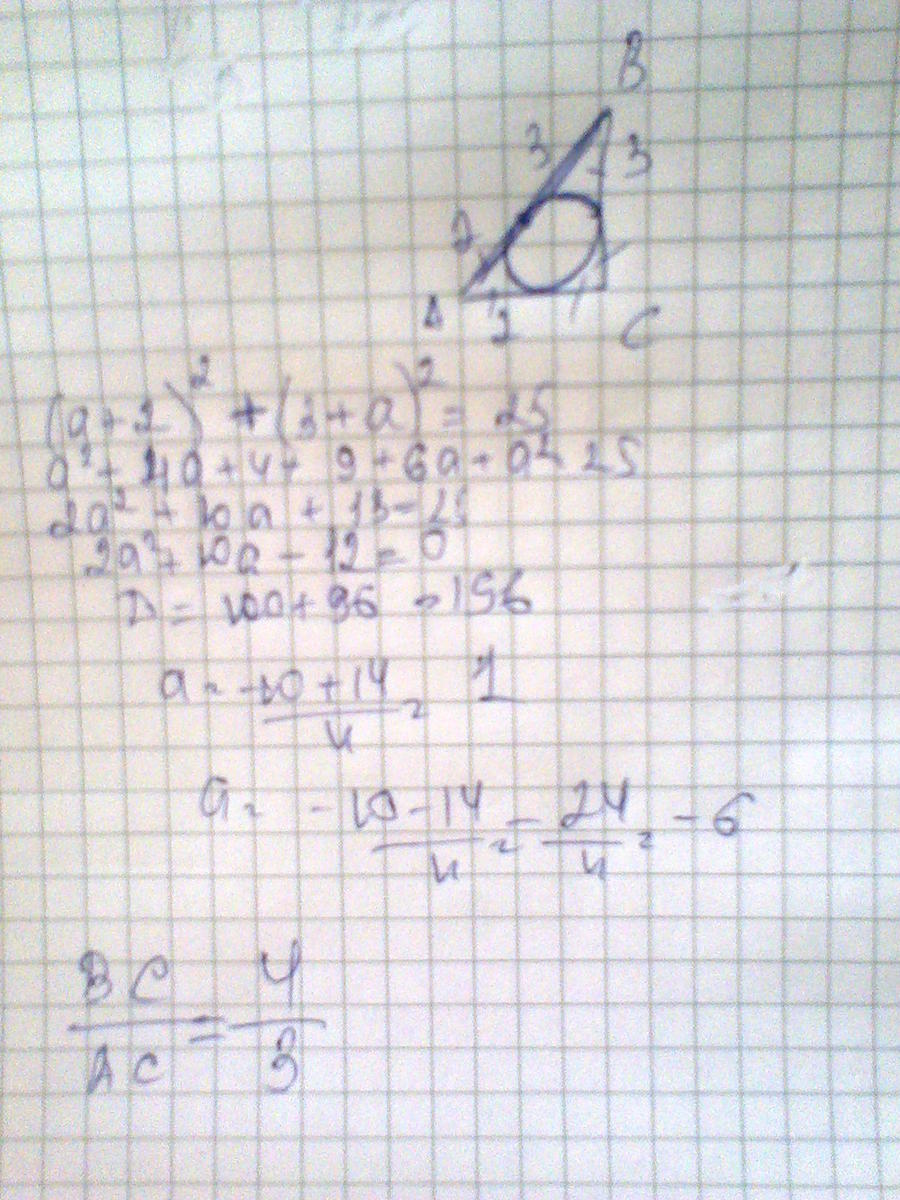 B
3 3
2
A 2 C
(a+2)² + (3+a)² = 25
a² + 4a + 4 + 9 + 6a + a² = 25
2a² + 10a + 13 = 25
2a² + 10a - 12 = 0
D = 100 + 96 = 196
a = \frac{-10+14}{4} = 1
a = \frac{-10-14}{4} = -\frac{24}{4} = -6
\frac{BC}{AC} = \frac{4}{3}